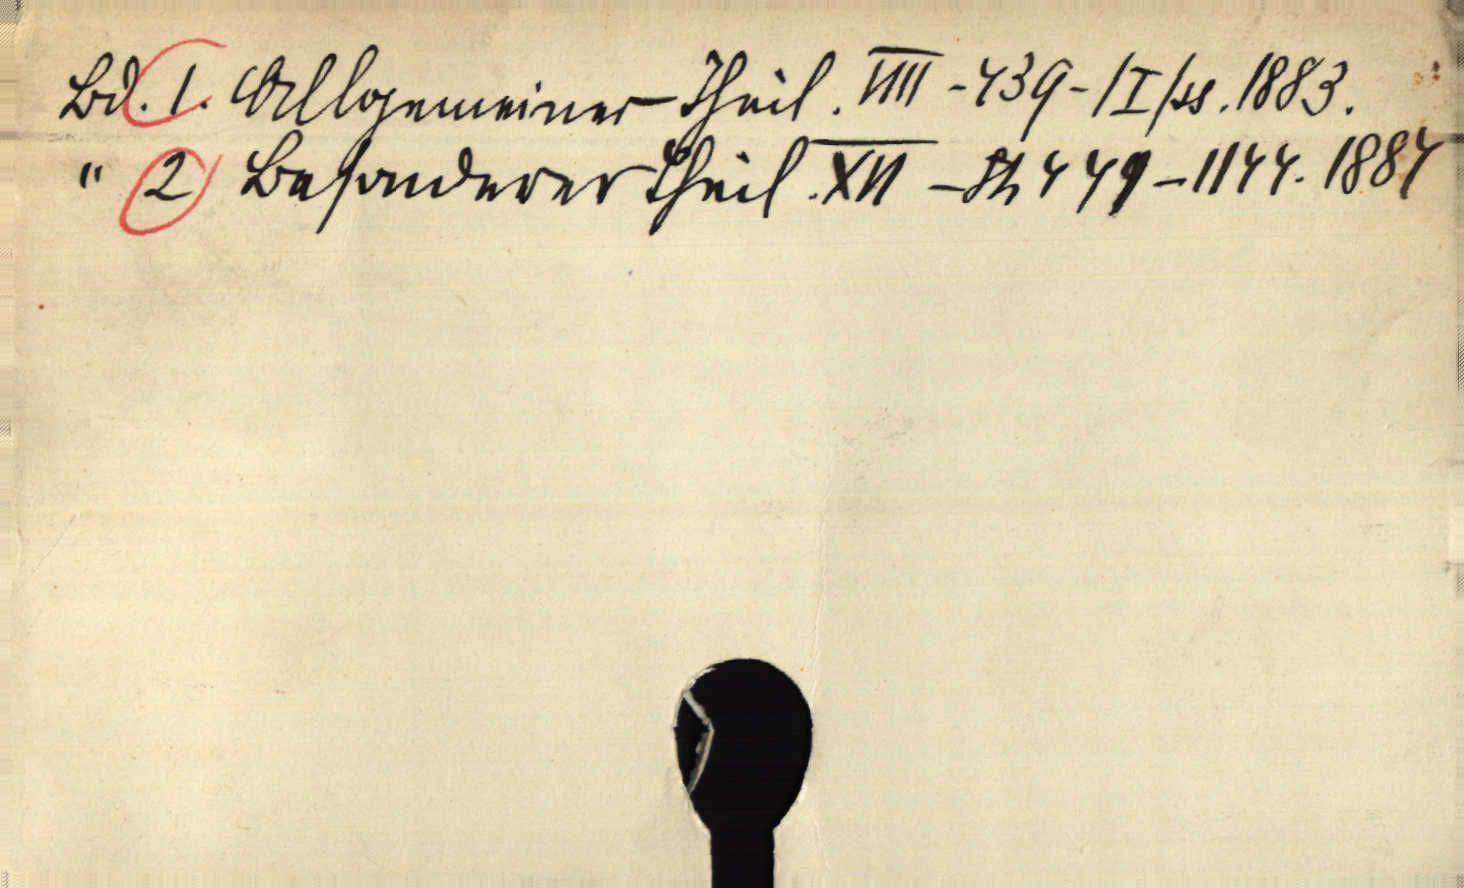 Bd. 1. Allgemeiner Theil. VIII - 439 - /I/ ss. 1883.
" 2 Besonderer Theil. XII - 449 - 1144. 1887